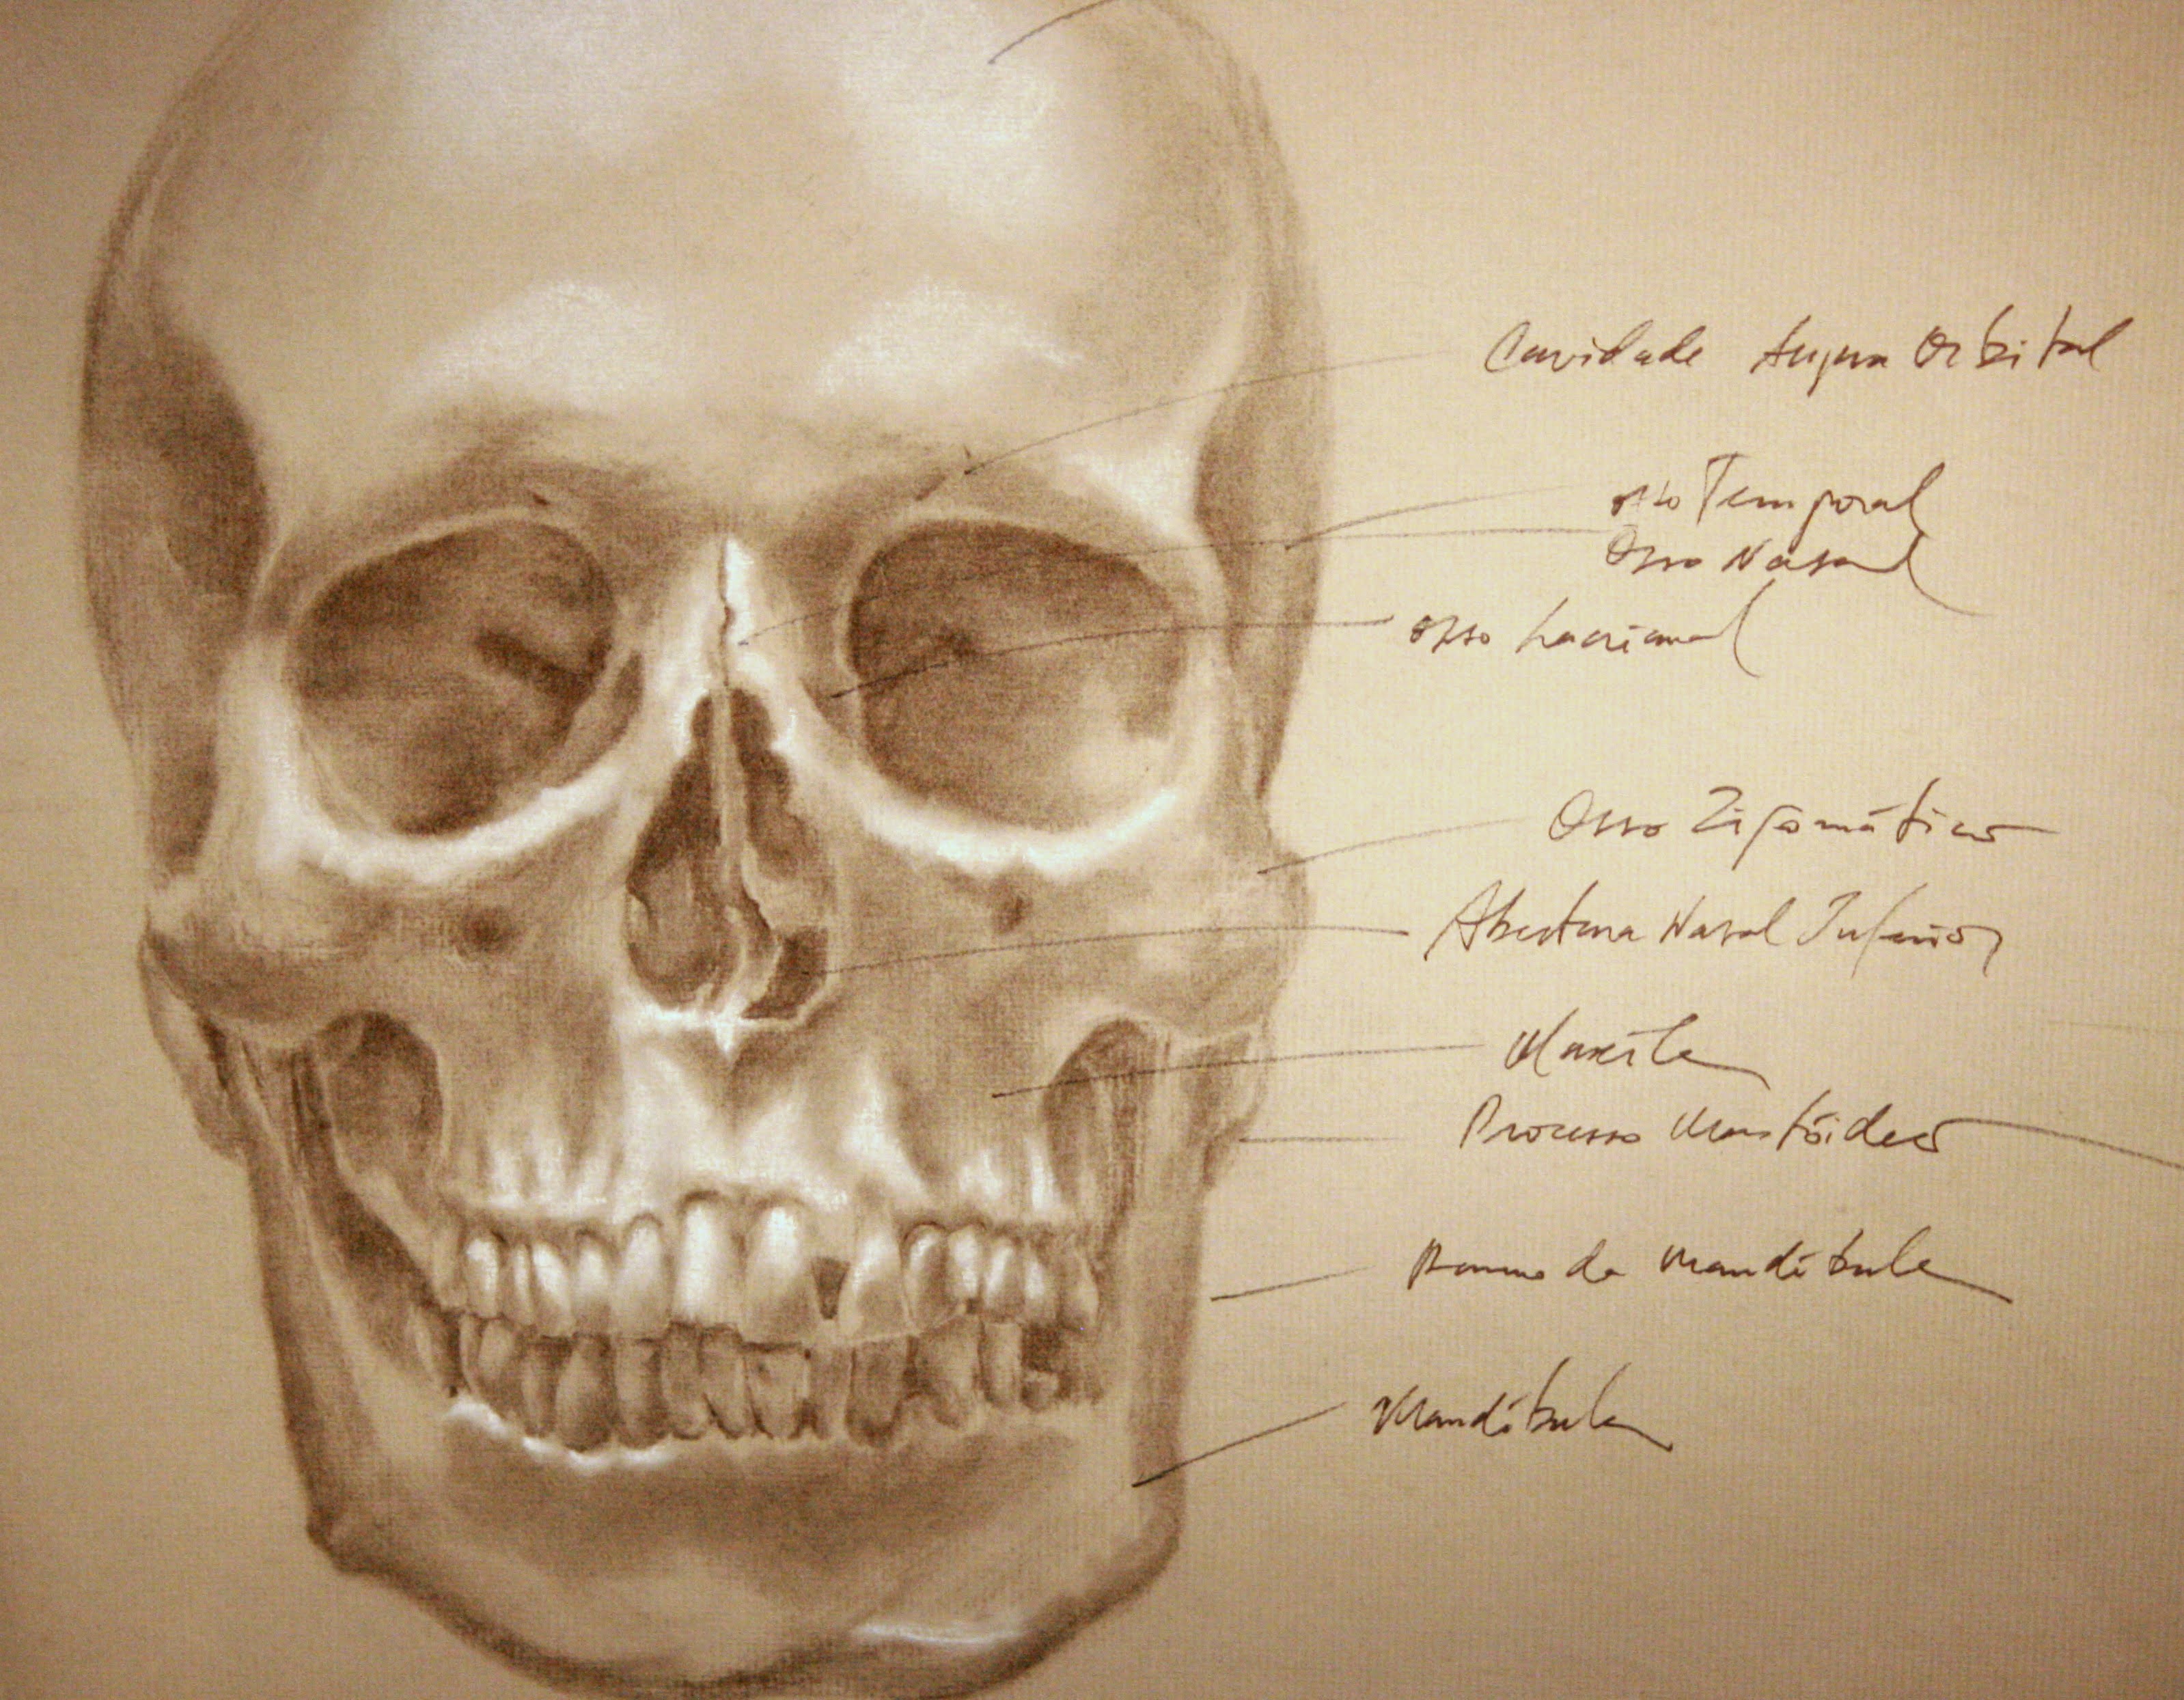 Cavidade Supra Orbital
Osso Temporal
Osso Nasal
Osso Lacrimal
Osso Zigomático
Abertura Nasal Inferior
Maxila
Processo Mastóideo
Ramo da Mandíbula
Mandíbula